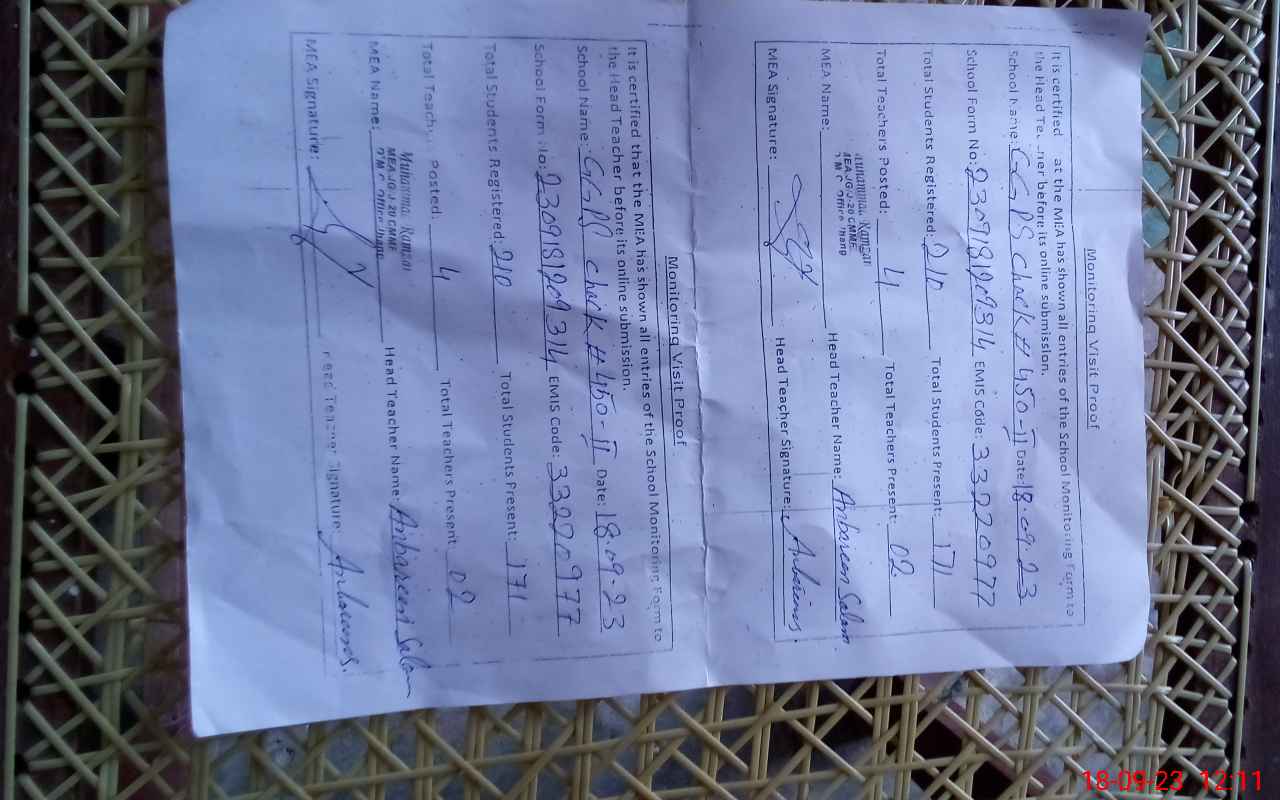 Monitoring Visit Proof
It is certified at the MEA has shown all entries of the School Monitoring Form to
the Head Te ner before its online submission.
School Name: GGPS chack # 450-II Date: 18.09.23
School Form No: 2309181909314 EMIS Code: 33220977
Total Students Registered: 210 Total Students Present: 171
Total Teachers Posted: 4 Total Teachers Present: 02
MEA Name: Muhammad Ramzan Head Teacher Name: Ambareen Salam
MEA JG/J-20 CMMF
Office Jhang
MEA Signature: Head Teacher Signature:
Monitoring Visit Proof
It is certified that the MEA has shown all entries of the School Monitoring Form to
the Head Teacher before its online submission.
School Name: GGPS chack # 450-II Date: 18.09.23
School Form No: 2309181909314 EMIS Code: 33220977
Total Students Registered: 210 Total Students Present: 171
Total Teach Posted: 4 Total Teachers Present: 02
MEA Name: Muhammad Ramzan Head Teacher Name: Ambareen Salam
MEA JG/J-20 CMMF
Office Jhang
MEA Signature: Head Teacher Signature:
18-09-23 12:11